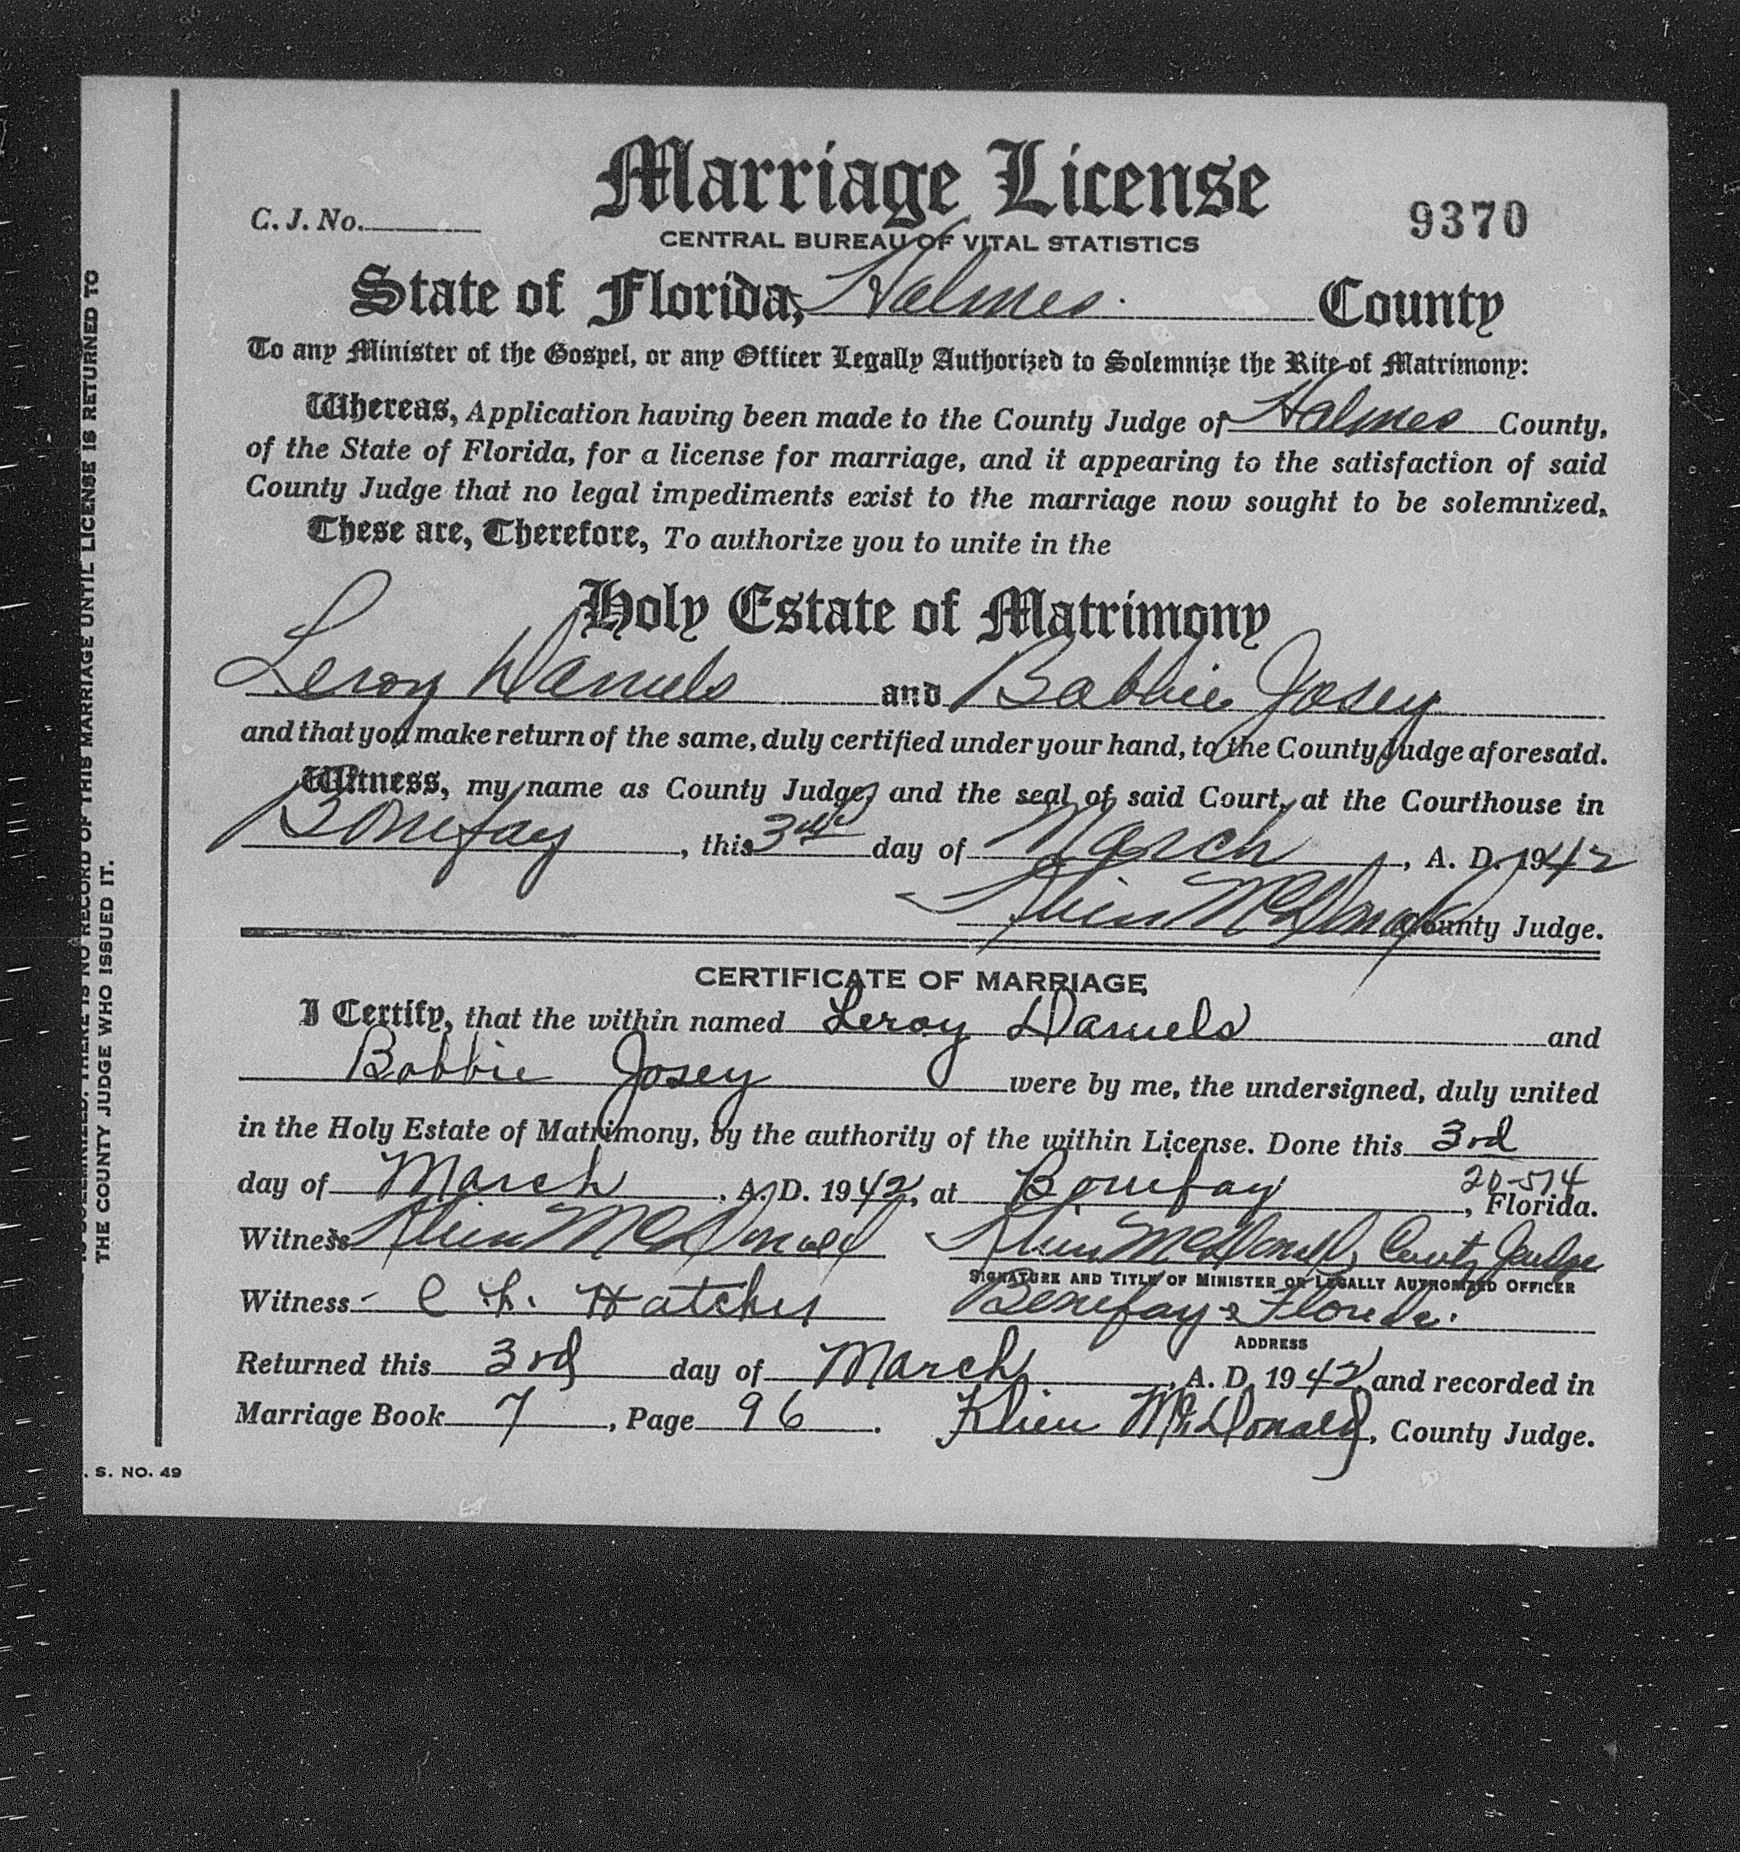 Marriage License
C. J. No.
9370
CENTRAL BUREAU OF VITAL STATISTICS
State of Florida, Holmes County
To any Minister of the Gospel, or any Officer Legally Authorized to Solemnize the Rite of Matrimony:
Whereas, Application having been made to the County Judge of Holmes County,
of the State of Florida, for a license for marriage, and it appearing to the satisfaction of said
County Judge that no legal impediments exist to the marriage now sought to be solemnized,
These are, Therefore, To authorize you to unite in the
Holy Estate of Matrimony
Leroy Daniels and Bobbie Josey
and that you make return of the same, duly certified under your hand, to the County Judge aforesaid.
Witness, my name as County Judge, and the seal of said Court, at the Courthouse in
Bonifay, this 3rd day of March, A. D. 1942
Klien McDonald County Judge.
CERTIFICATE OF MARRIAGE
I Certify, that the within named Leroy Daniels and
Bobbie Josey were by me, the undersigned, duly united
in the Holy Estate of Matrimony, by the authority of the within License. Done this 3rd
20-574
day of March, A. D. 1942, at Bonifay, Florida.
Witness Klien McDonald Klien McDonald, County Judge
SIGNATURE AND TITLE OF MINISTER OR LEGALLY AUTHORIZED OFFICER
Witness C. L. Hatcher Bonifay, Florida.
ADDRESS
Returned this 3rd day of March, A. D. 1942, and recorded in
Marriage Book 7, Page 96. Klien McDonald, County Judge.
. S. NO. 49
THERE IS NO RECORD OF THIS MARRIAGE UNTIL LICENSE IS RETURNED TO
THE COUNTY JUDGE WHO ISSUED IT.